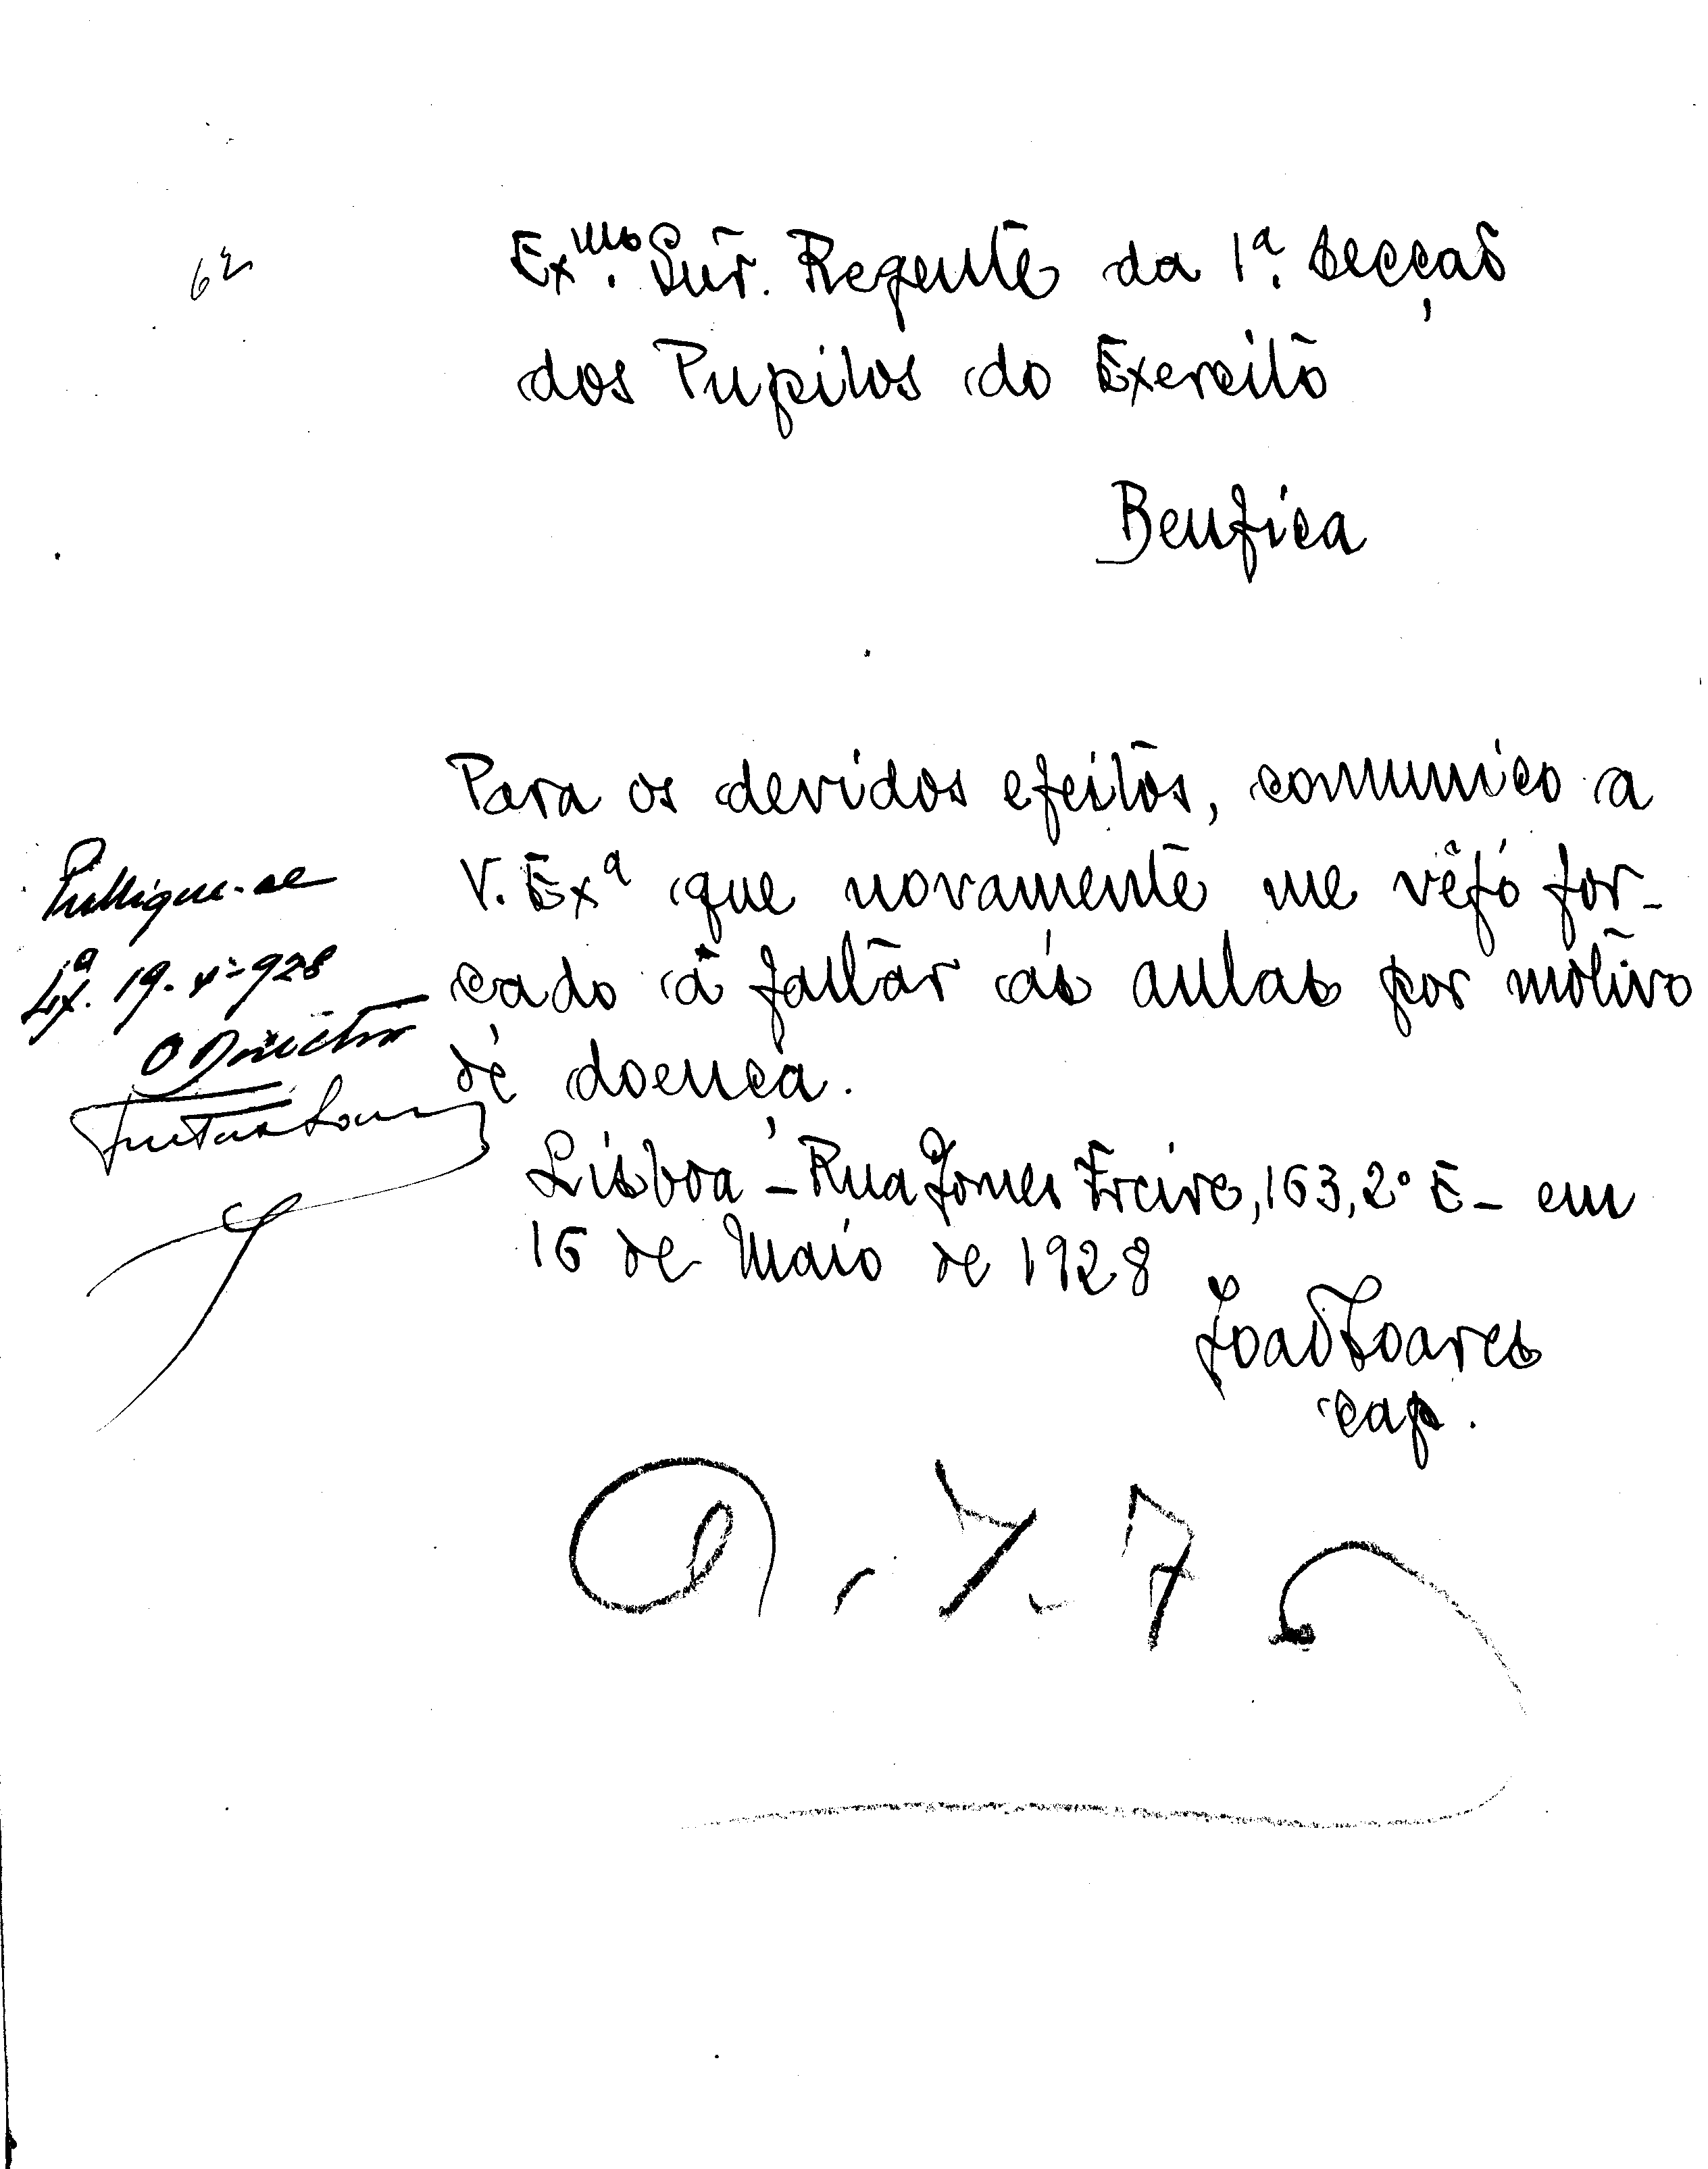 62
Exmo. Snr. Regente da 1ª. Secção
dos Pupilos do Exercito
Benfica
Para os devidos efeitos, comunico a
V. Exª que novamente me vêjo for-
cado a faltar ás aulas por motivo
de doença.
Lisboa - Rua Gomes Freire, 163, 2º E - em
16 de Maio de 1928
João Soares
cap.
Publique-se
Lxª. 19-V-928
O Director